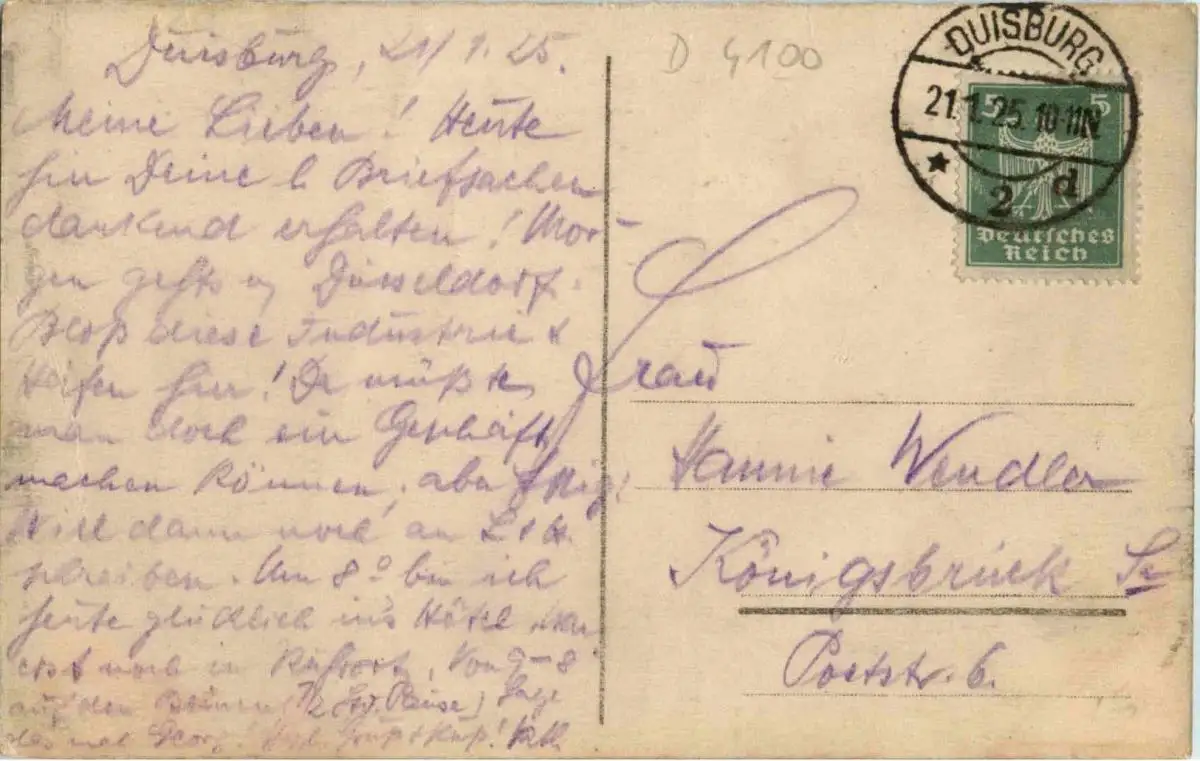 Duisburg, 21/1.25.
Meine Lieben! Heute
hier Deine l Briefsachen
dankend erhalten! Mor-
gen gehts n Düsseldorf.
Bloß diese Industrie &
Häfen hier! Da müßte
man doch ein Geschäft
machen können, aber
Will dann noch an
schreiben. Um 8° bin ich
heute glücklich ins Hotel, war
erst noch in Ruhrort, von 7-8
auf den Beinen,
das mal Georg!
D 4100
DUISBURG
21.1.25.10-11N
* 2 d
5 5
Deutsches
Reich
Frau
Hannie Wendler
Königsbrück Sa
Poststr. 6.